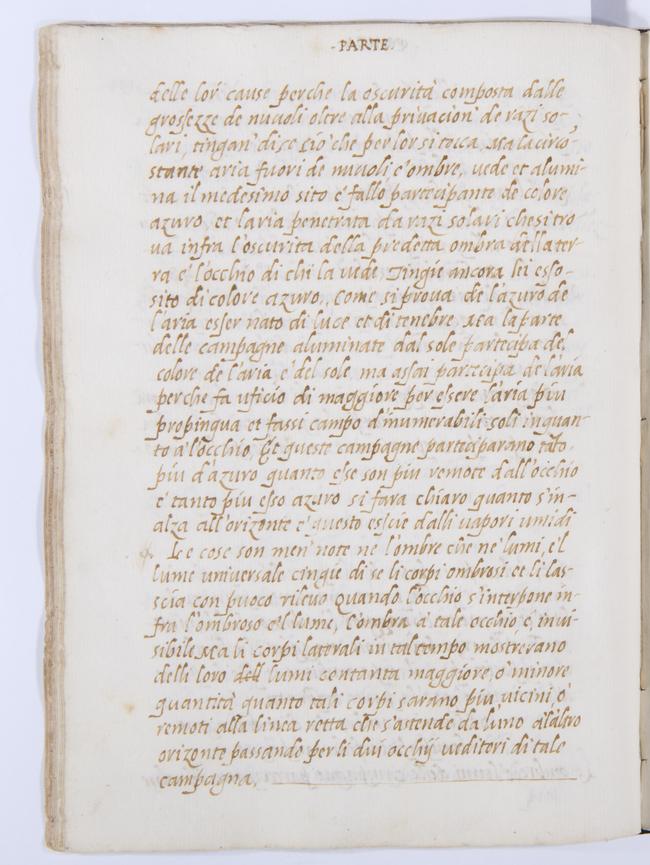 - PARTE.
delle lor' cause perche la oscurità composta dalle
grossezze de nuuoli oltre alla priuacion' de razi so-
lari, tingan' di se ciò che per lor si tocca. Ma la circō
stante aria fuori de nuuoli e' ombre, uede et alumi-
na il medesimo sito e' fallo partecipante de colore
azuro, et l'aria penetrata da razi solari che si tro
ua infra l'oscurita della predetta ombra della ter-
ra e' l'occhio di chi la uede, Tingie ancora lei esso
sito di colore azuro, Come si proua de l'azuro de
l'aria esser nato di luce et di tenebre Ma la parte
delle campagne aluminate dal sole partecipa del
colore de l'aria, e' del sole, ma assai partecipa de l'aria
perche fa uficio di maggiore per essere l'aria piu
propinqua et fassi campo d'inumerabili soli inquan-
to a l'occhio, Et queste campagne participarano tāto
piu d'azuro quanto esse son piu remote dall'occhio
e' tanto piu esso azuro si fara chiaro quanto s'in-
alza all'orizonte e' questo escie dalli uapori umidi
Le cose son men' note ne l'ombre che ne' lumi, e'l
lume uniuersale cingie di se li corpi ombrosi et li las-
scia con puoco rileuo quando l'occhio s'interpone in-
fra l'ombroso e'l lume, L'ombra à tale occhio è, inui-
sibile Ma li corpi laterali in tal tempo mostrerano
delli loro dell lumi contanta maggiore, ò minore
quantità quanto tali corpi sarano piu uicini, ò
remoti alla linea retta che s'astende da l'uno al'altro
orizonte passando per li dui occhij ueditori di tale
campagna.